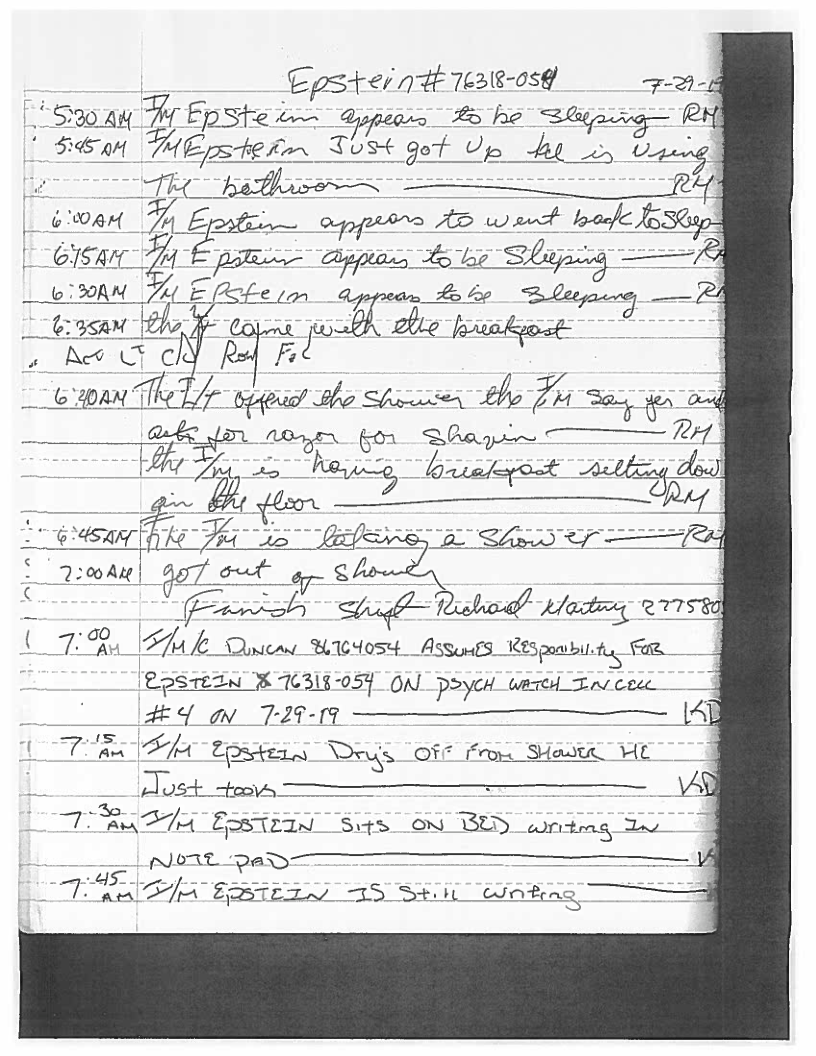 Epstein # 76318-054 7-29-19
5:30 AM I/M Epstein appears to be sleeping — RM
5:45 AM I/M Epstein Just got Up he is Using
The bathroom — RM
6:00 AM I/M Epstein appears to went back to Sleep
6:15 AM I/M Epstein appears to be Sleeping — RM
6:30 AM I/M EPStein appears to be sleeping — RM
6:35 AM the came with the breakfast
LT
6:40 AM The L/T offered the Shower the I/M Say yes and
ask for razor for Shavin — RM
the I/M is having breakfast setting dow
in the floor — RM
6:45 AM The I/M is taking a Shower — RM
7:00 AM got out of Shower
Fanish Shift Richard
7:00 AM I/M/C DUNCAN 86764054 ASSUMES RESponibility FOR
EPSTEIN 76318-054 ON PSYCH WATCH IN CELL
#4 ON 7-29-19 — KD
7:15 AM I/M EpstEIN Dry's OFF From SHOWER HE
Just took — KD
7:30 AM I/M EPSTEIN Sits ON BED writing IN
NOTE PAD — K
7:45 AM I/M EPSTEIN IS Still writing —